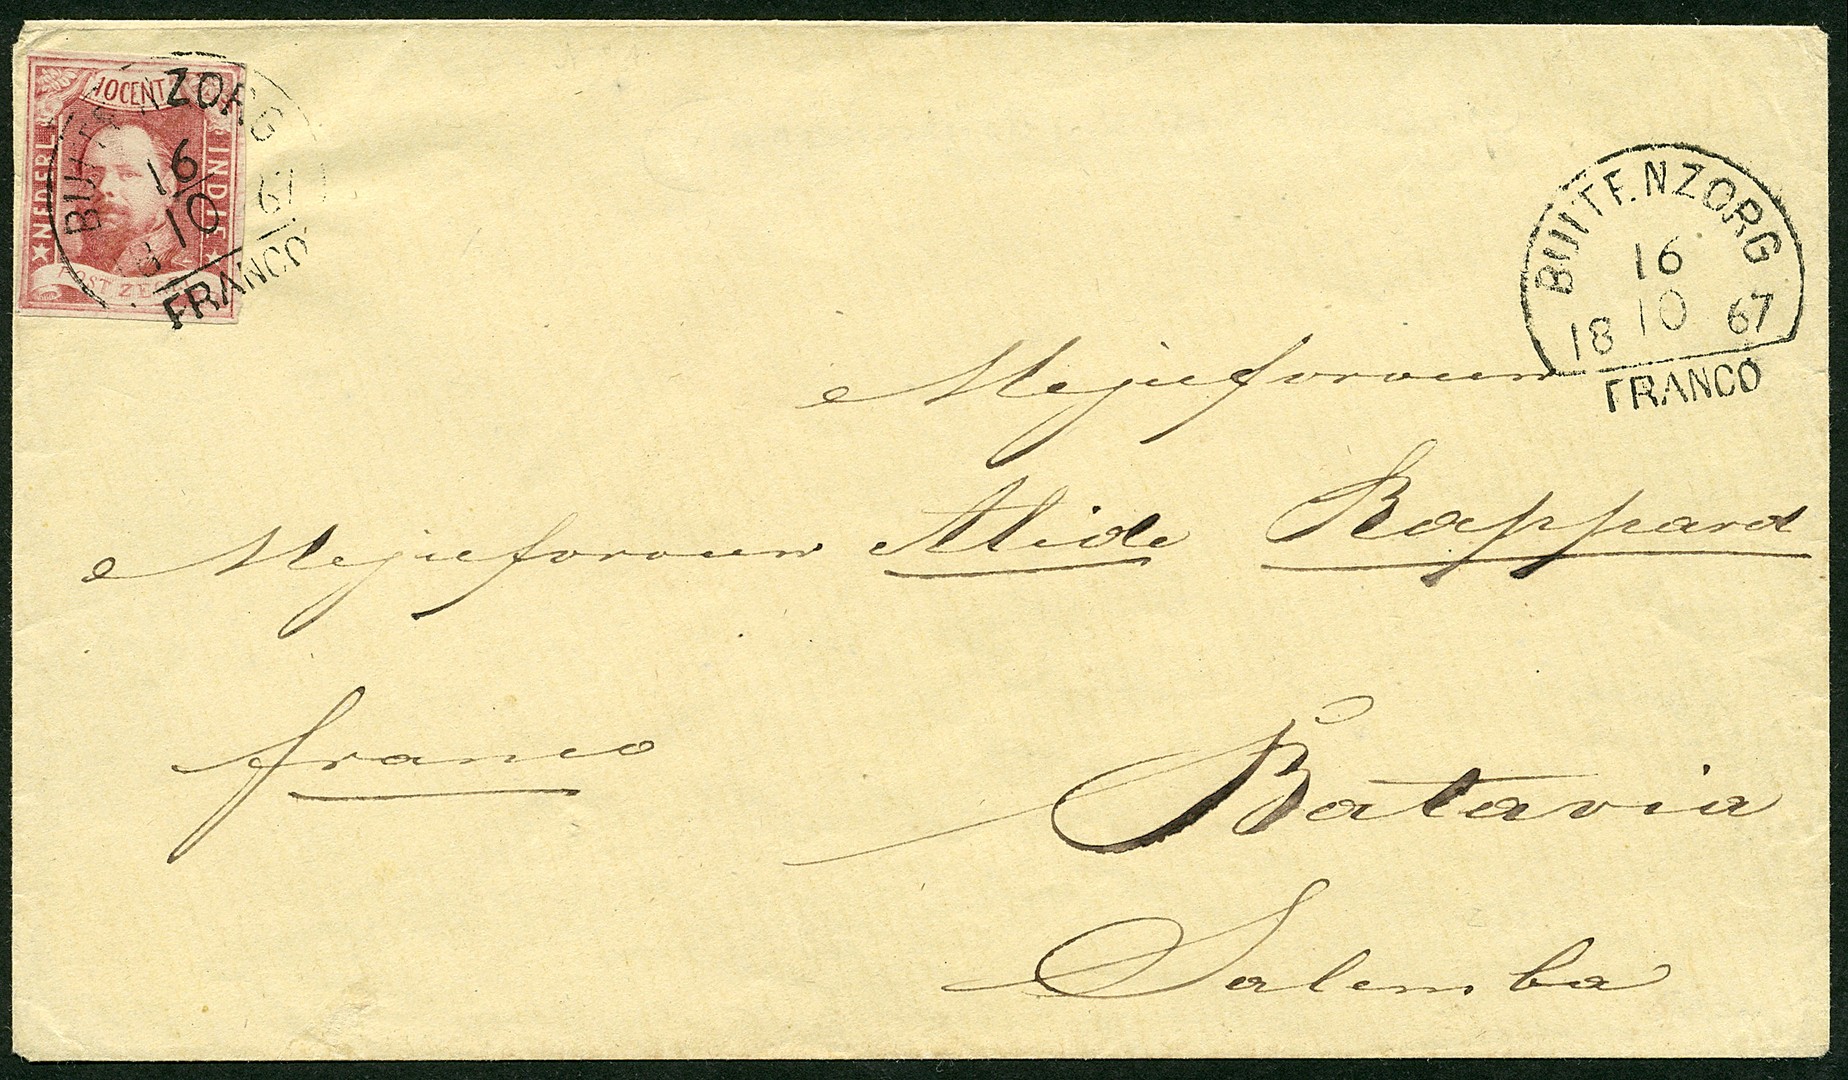 10 CENT
NEDERL INDIE
POST ZEGEL
BUITENZORG
16
10
18 67
FRANCO
BUITENZORG
16
18 10 67
FRANCO
Mejufvrouw
Mejufvrouw Alide Rappard
franco
Batavia
Salemba